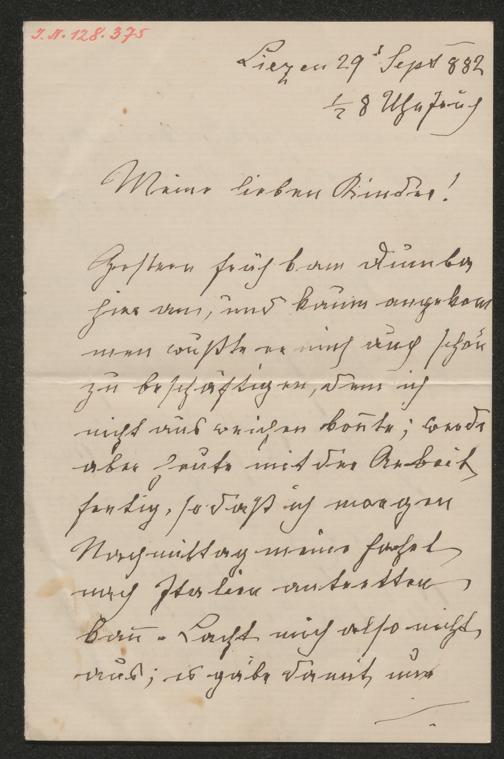 I.N. 128.375
Liezen 29t Sept 882
½ 8 Uhr früh
Meine lieben Kinder!
Gestern früh kam Dumba
hier an, und kaum angekom
men wußte er mich auch schön
zu beschäftigen, dem ich
nicht ausweichen kon̄te; werde
aber heute mit der Arbeit
fertig, so daß ich morgen
Nachmittag meine Fahrt
nach Italien antretten
kan̄. Lacht mich also nicht
aus; es gäbe damit nur